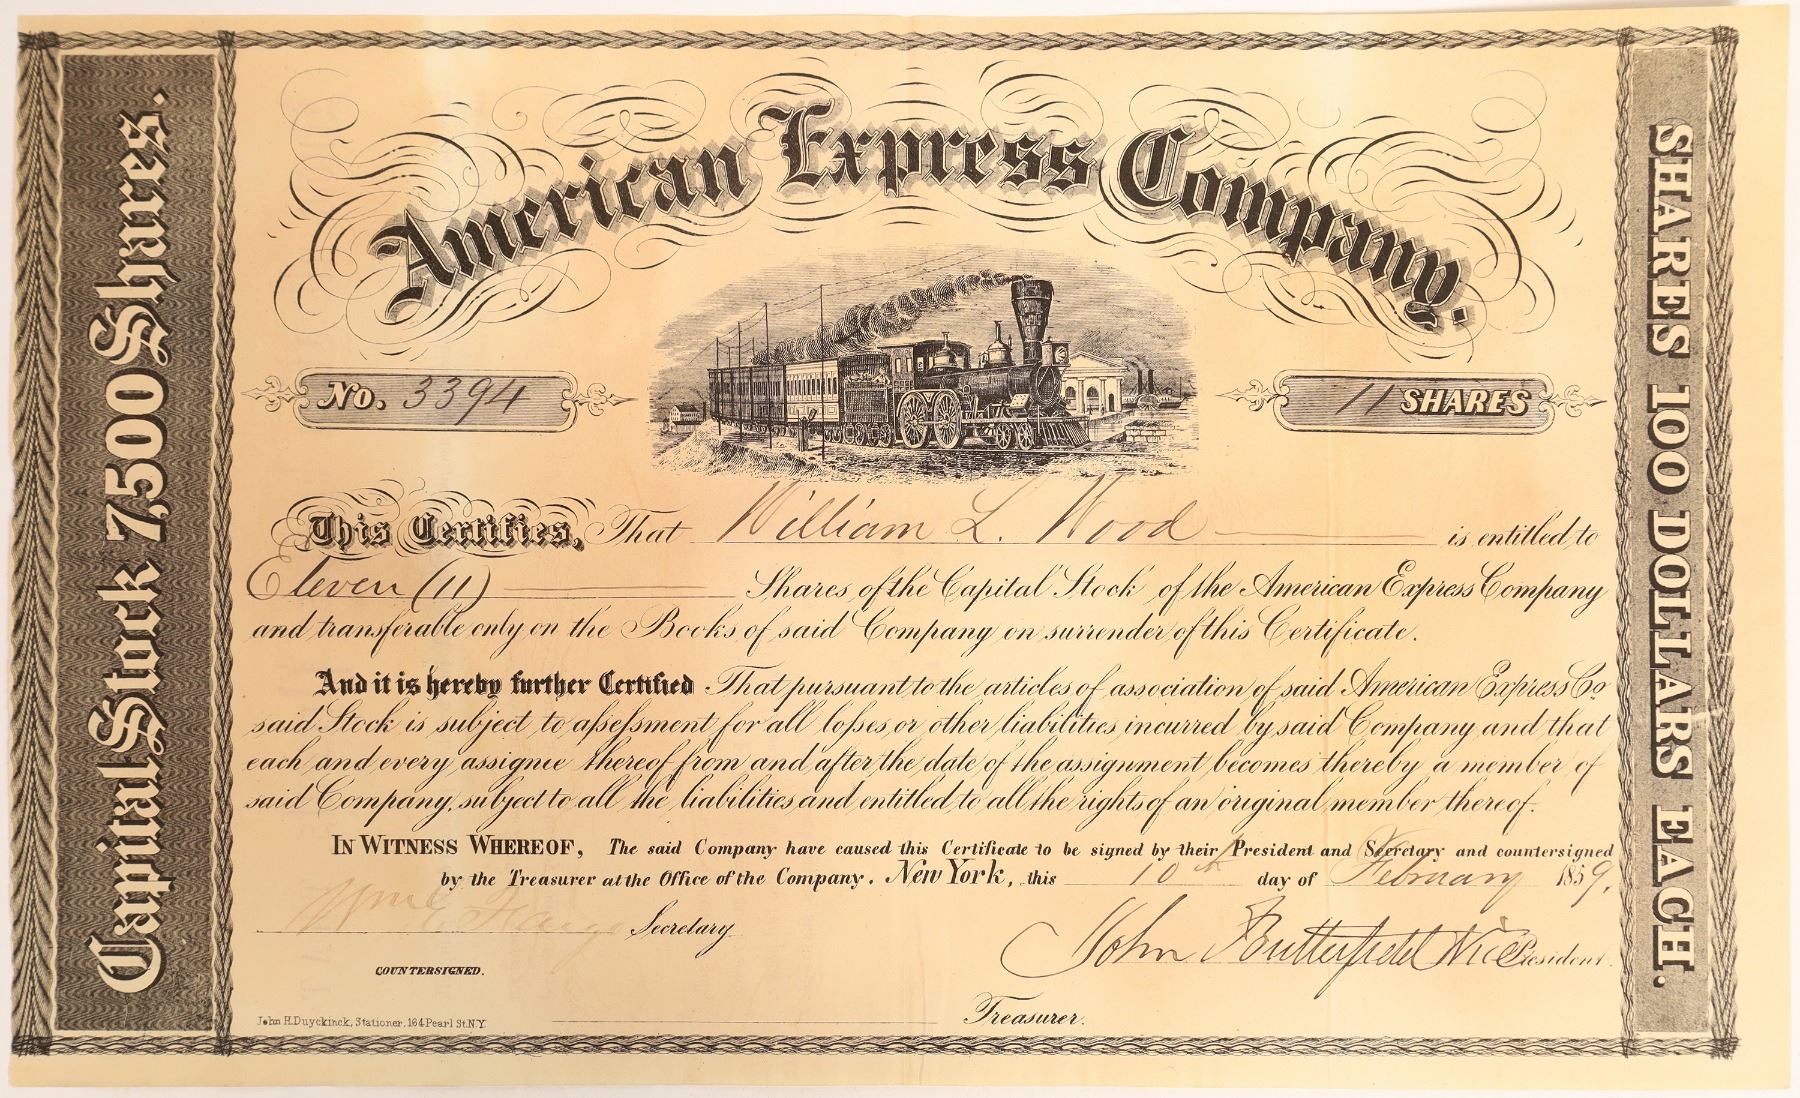 American Express Company.
Capital Stock 7,500 Shares.
SHARES 100 DOLLARS EACH.
No. 3394
11 SHARES
This Certifies, That William L. Wood is entitled to
Eleven (11) Shares of the Capital Stock of the American Express Company
and transferable only on the Books of said Company on surrender of this Certificate.
And it is hereby further Certified That pursuant to the articles of association of said American Express Co
said Stock is subject to assessment for all losses or other liabilities incurred by said Company and that
each and every assignee thereof from and after the date of the assignment becomes thereby a member of
said Company, subject to all the liabilities and entitled to all the rights of an original member thereof.
IN WITNESS WHEREOF, The said Company have caused this Certificate to be signed by their President and Secretary and countersigned
by the Treasurer at the Office of the Company. New York, this 10th day of February 1859.
Wm G Fargo Secretary
John Butterfield Vice President.
COUNTERSIGNED.
Treasurer.
John H. Duyckinck, Stationer, 164 Pearl St. N.Y.